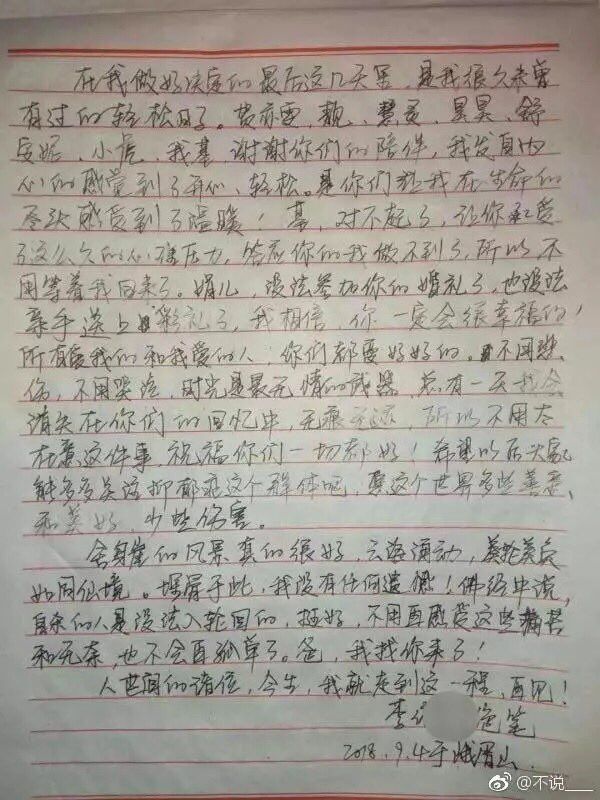 在我做好决定的最后这几天里，是我很久未曾
有过的轻松日子。贺亦雯，靓、慧灵、昊昊、舒
安妮、小虎、我基，谢谢你们的陪伴，我发自内
心的感觉到了开心、轻松。是你们让我在生命的
尽头感受到了温暖！基，对不起了，让你承受
了这么久的心理压力，答应你的我做不到了，所以，不
用等着我回来了。娟儿，没法参加你的婚礼了，也没法
亲手送上彩礼了，我相信，你一定会很幸福的！
所有爱我的和我爱的人，你们都要好好的，不用悲
伤，不用哭泣，时光是最无情的武器，总有一天我会
消失在你们的回忆中，无痕无迹，所以不用太
在意这件事，祝福你们一切都好！希望以后大家
能多多关注抑郁症这个群体吧，愿这个世界多些善意、
和美好，少些伤害。
舍身崖的风景真的很好，云海涌动，美轮美奂
如同仙境。埋骨于此，我没有任何遗憾！佛经中说，
自杀的人是没法入轮回的，挺好，不用再感受这些痛苦
和无奈，也不会再孤单了。爸，我找你来了！
人世间的诸位，今生，我就走到这一程，再见！
李 绝笔
2018.9.4于峨眉山
@不说___